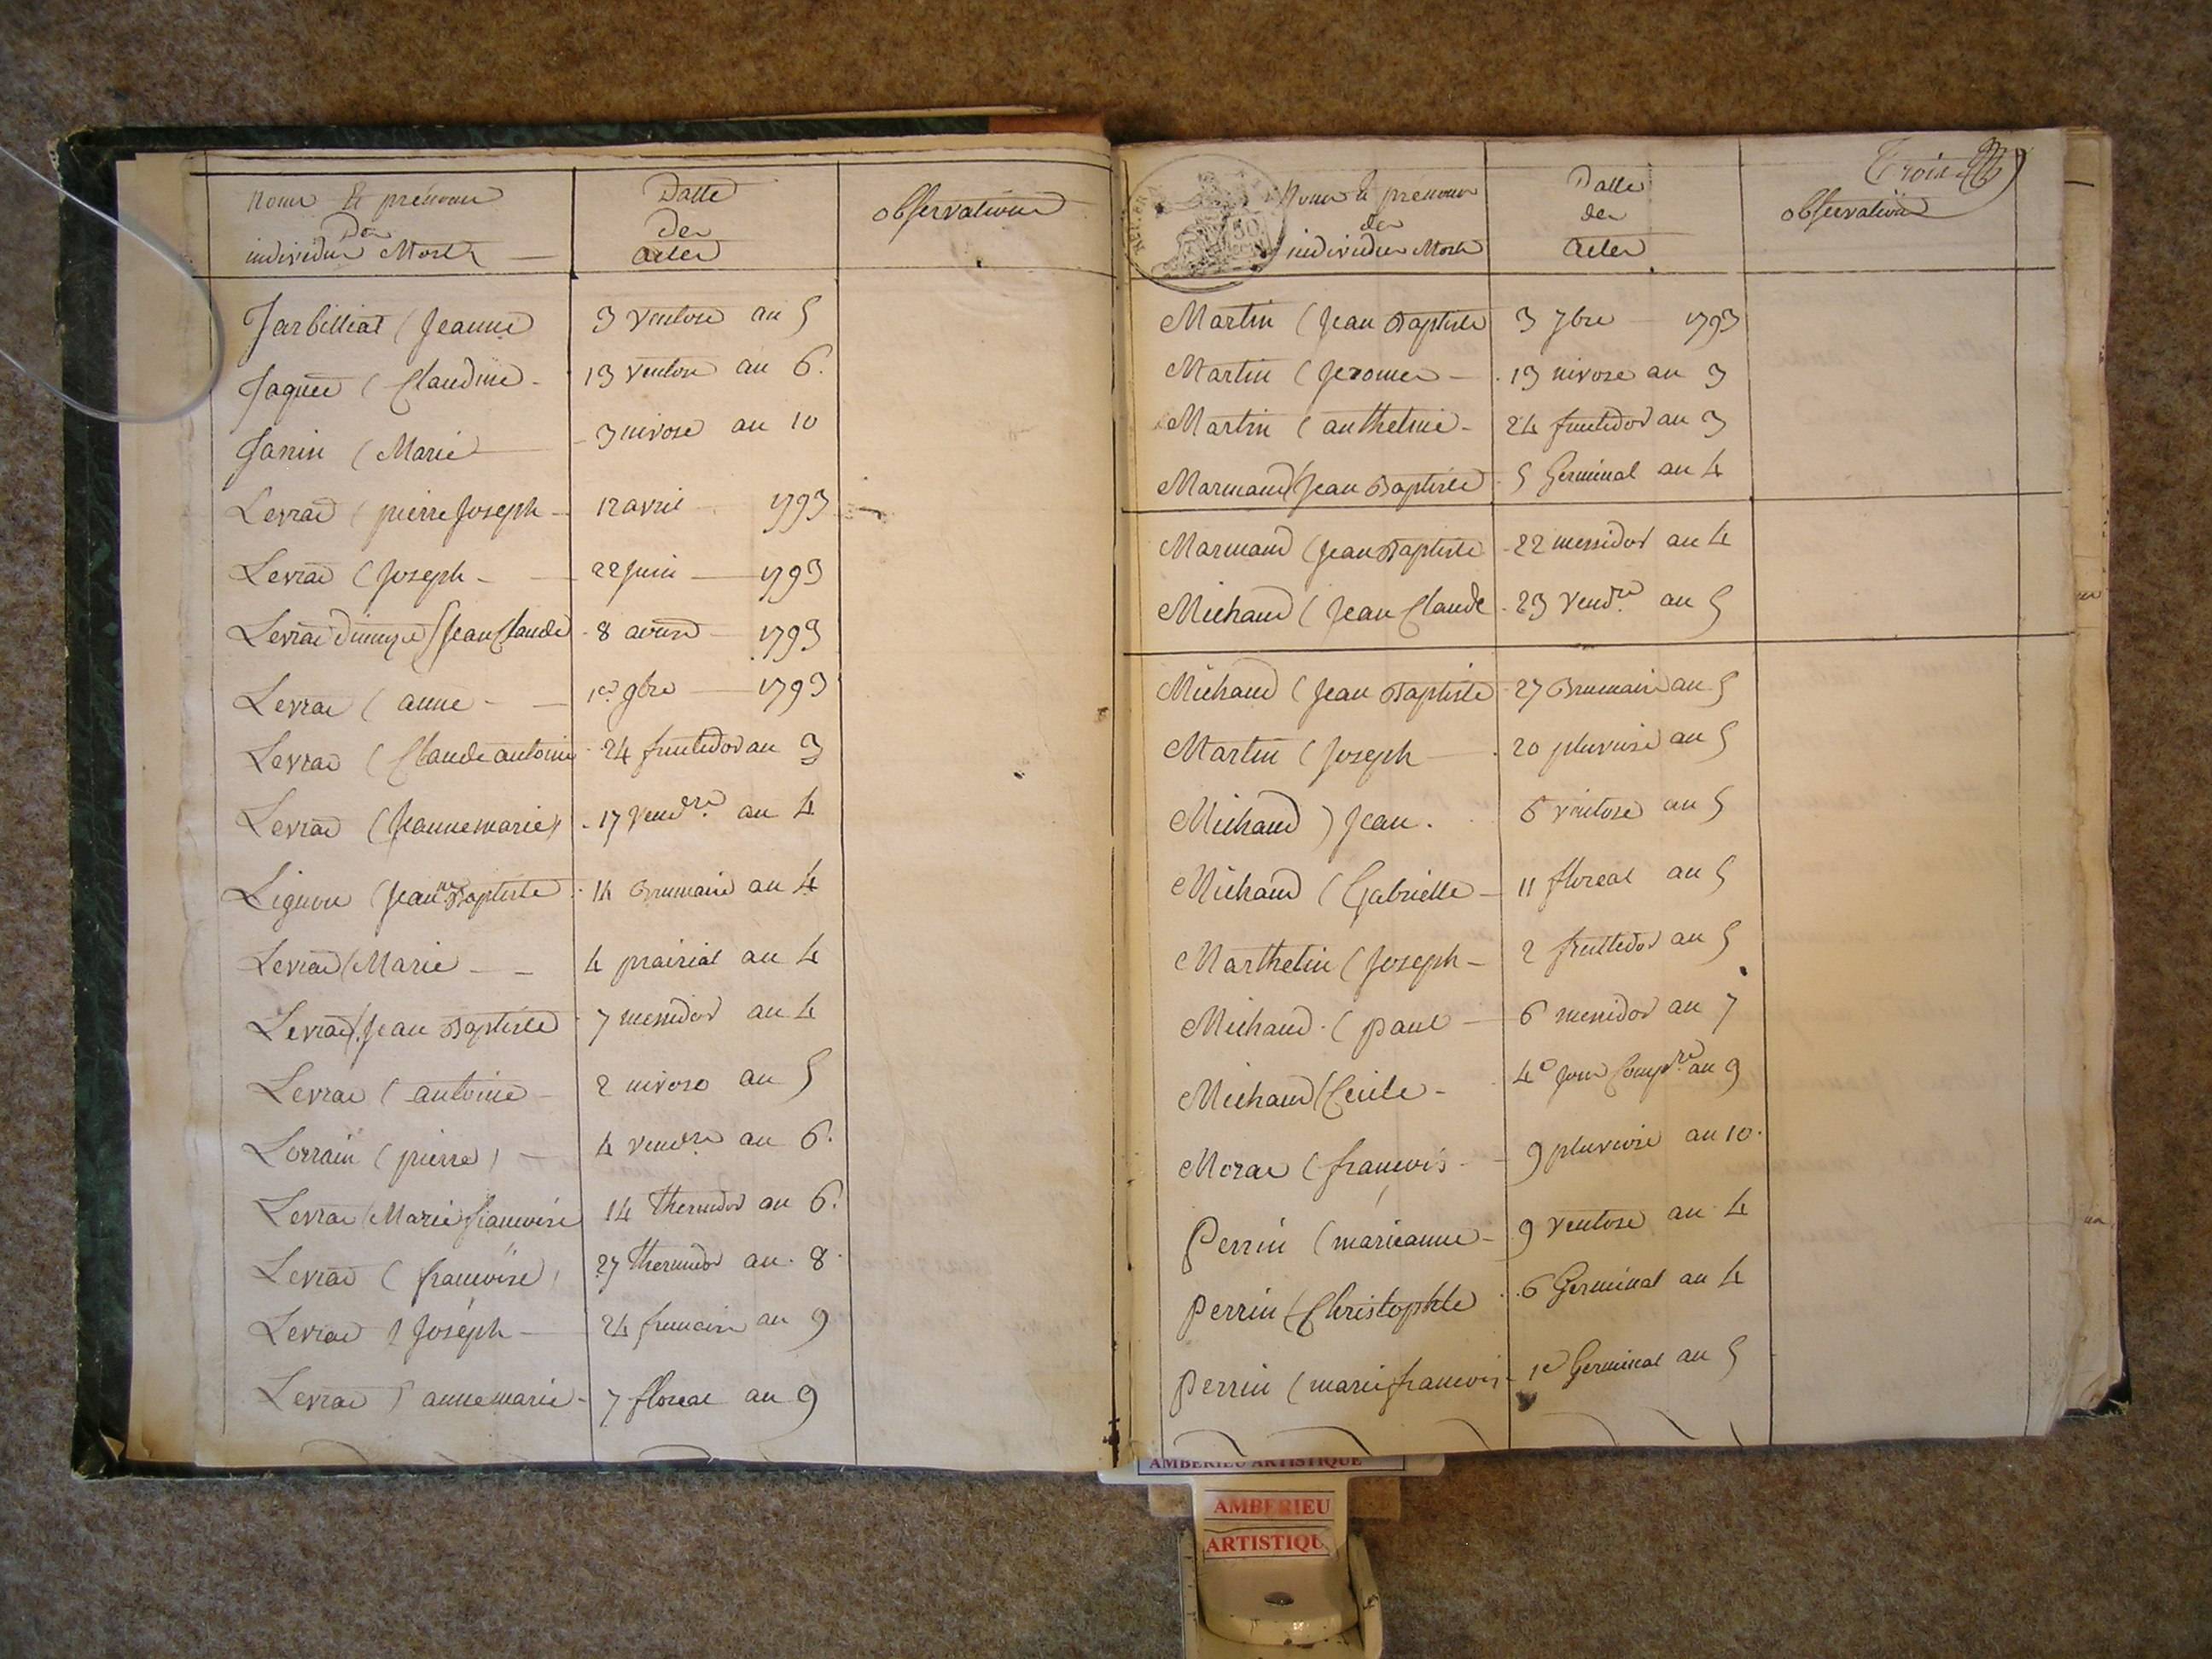 Noms et prénoms
Des
individus Morts
Datte
Des
actes
observations
Jarbilliat (Jeanne
3 ventose an 5
Jaques (Claudine
13 ventose an 6.
Janin (Marie
3 nivose an 10
Levrad (pierre Joseph
12 avril 1793
Levrad (Joseph
22 Juin 1793
Levrad (Jean Claude
8 1793
Levrad (anne
1er 9bre 1793
Levrad (Claude antoine
24 fructidor an 3
Levrad (Jeannemarie)
17 vendre. an 4
Lignon (Jeanne Baptiste
Brumaire an 4
Levrad (Marie
4 prairial an 4
Levrad (Jean Baptiste
7 messidor an 4
Levrad (antoine
2 nivose an 5
Lorrain (pierre)
4 vendre. an 6.
Levrad (Marie françoise
14 thermidor an 6.
Levrad (françoise)
27 thermidor an 8
Levrad (Joseph
24 frimaire an 9
Levrad (annemarie
7 floreal an 9
Trois
Noms et prénoms
des
individus Morts
Datte
des
actes
observations
Martin (Jean Baptiste
3 7bre 1793
Martin (Jerome
13 nivose an 3
Martin (anthelme
24 fructidor an 3
Marmand (Jean Baptiste
5 Germinal an 4
Marmand (Jean Baptiste
22 messidor an 4
Michaud (Jean Claude
23 vendre. an 5
Michaud (Jean Baptiste
27 Brumaire an 5
Martin (Joseph
20 pluviose an 5
Michaud) Jean.
6 ventose an 5
Michaud (Gabrielle
11 floreal an 5
Marthelin (Joseph
2 fructidor an 5
Michaud (paul
6 messidor an 7
Michaud (Cecile
4e jour Compre an 9
Morae (françois
9 pluviose an 10.
Perrin (marieanne
9 ventose an 4
Perrin (Christophle
6 Germinal an 4
Perrin (marie françois
1er Germinal an 5
AMBERIEU ARTISTIQUE
AMBERIEU
ARTISTIQU